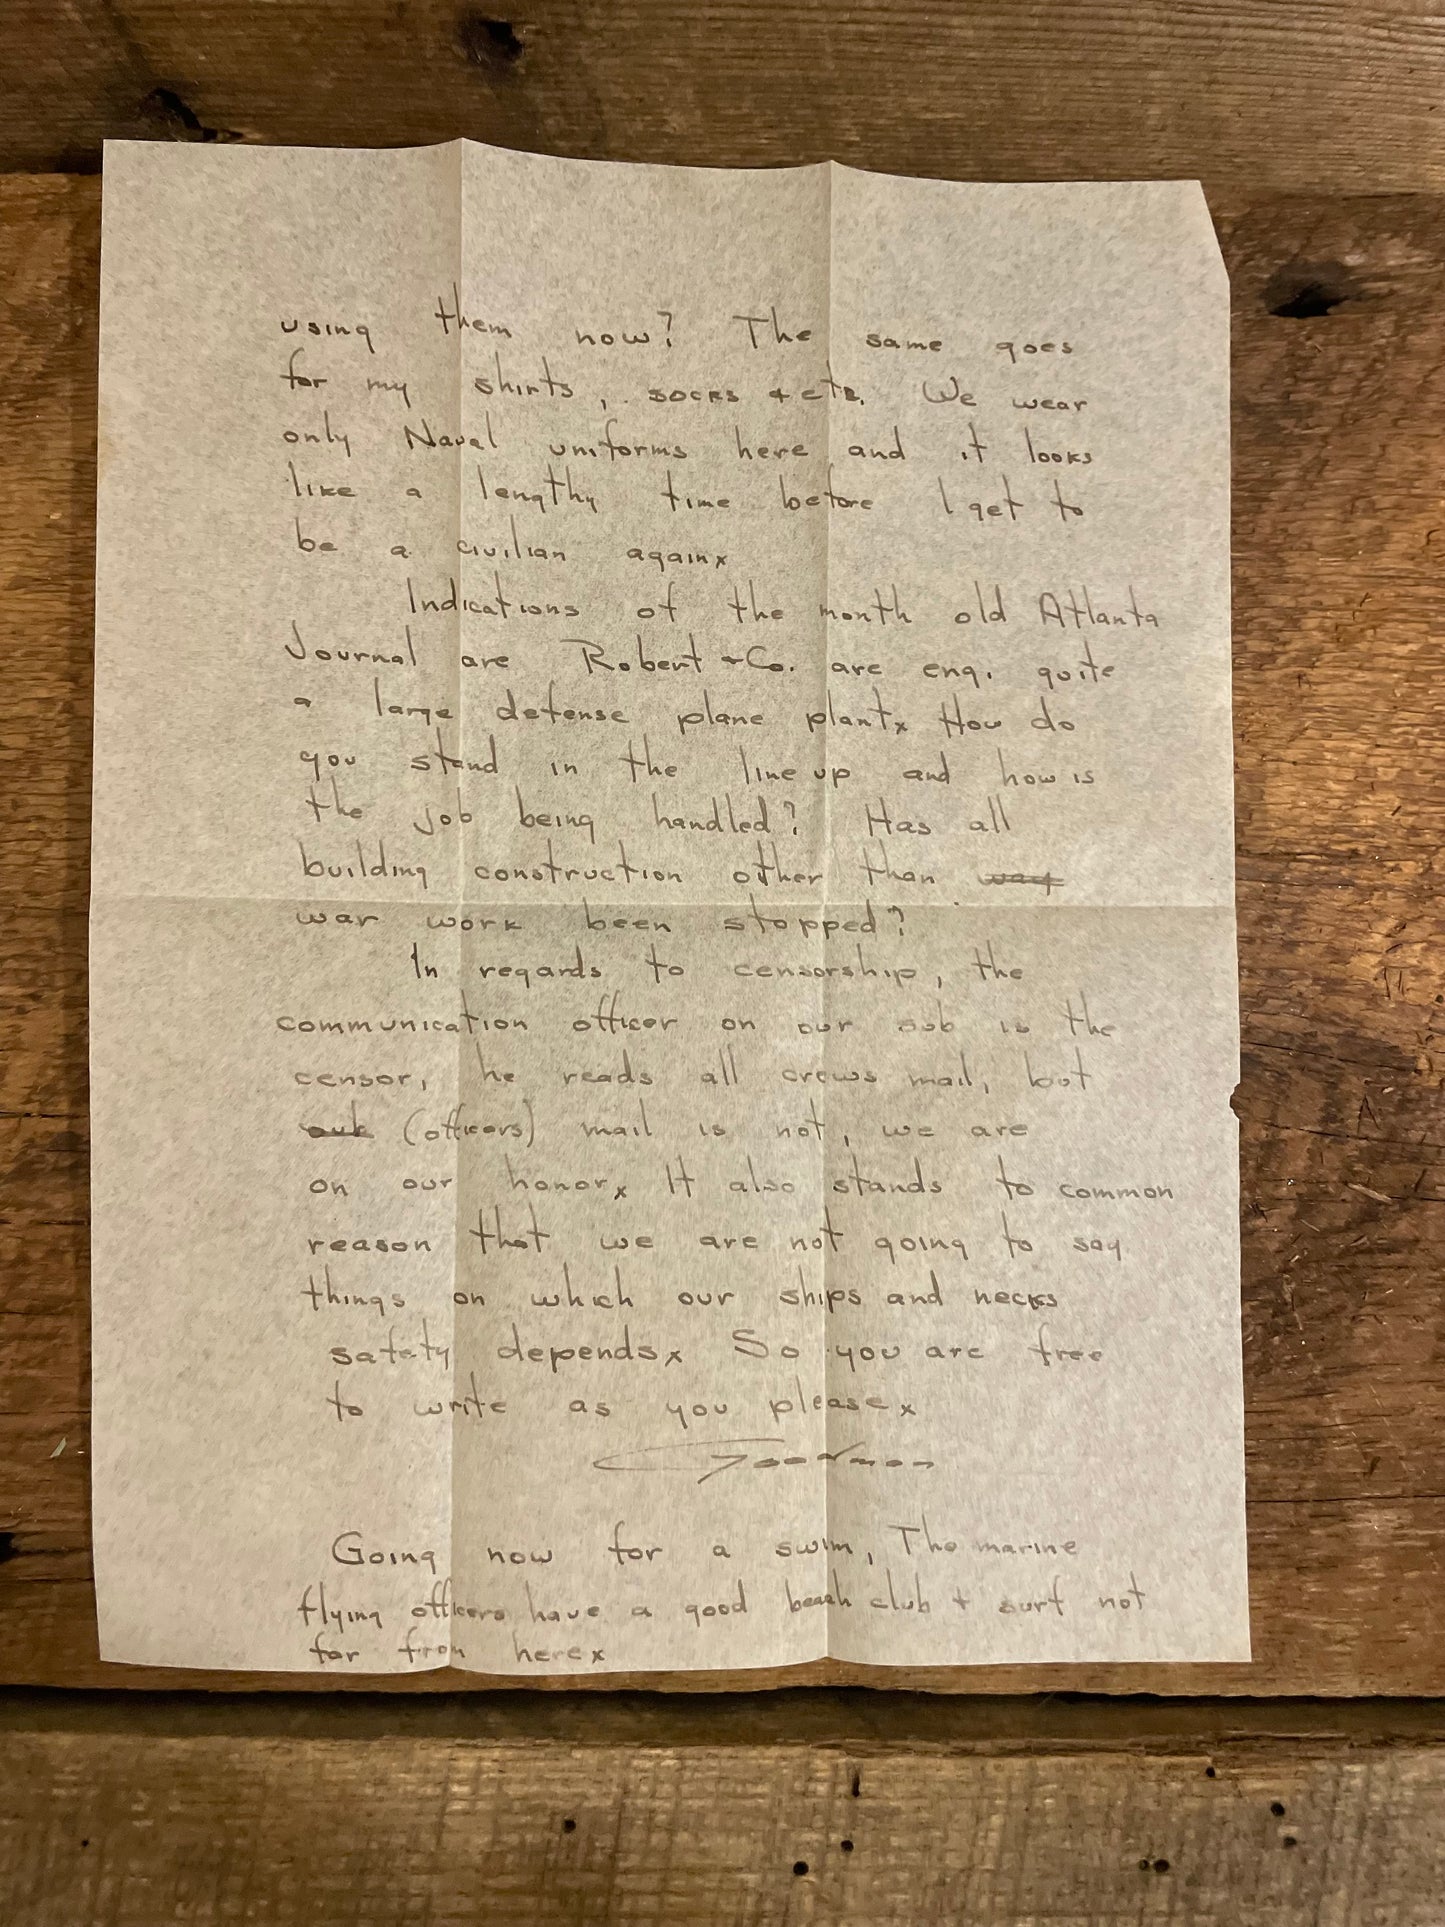 using them now? The same goes
for my shirts, socks & etc. We wear
only Naval uniforms here and it looks
like a lengthy time before I get to
be a civilian againx
Indications of the month old Atlanta
Journal are Robert & Co. are eng. quite
a large defense plane plantx How do
you stand in the line up and how is
the job being handled? Has all
building construction other than
war work been stopped?
In regards to censorship, the
communication officer on our sub is the
censor, he reads all crews mail, but
our (officers) mail is not, we are
on our honorx It also stands to common
reason that we are not going to say
things on which our ships and necks
safety dependsx So you are free
to write as you pleasex
Goodman
Going now for a swim, The marine
flying officers have a good beach club + surf not
far from herex